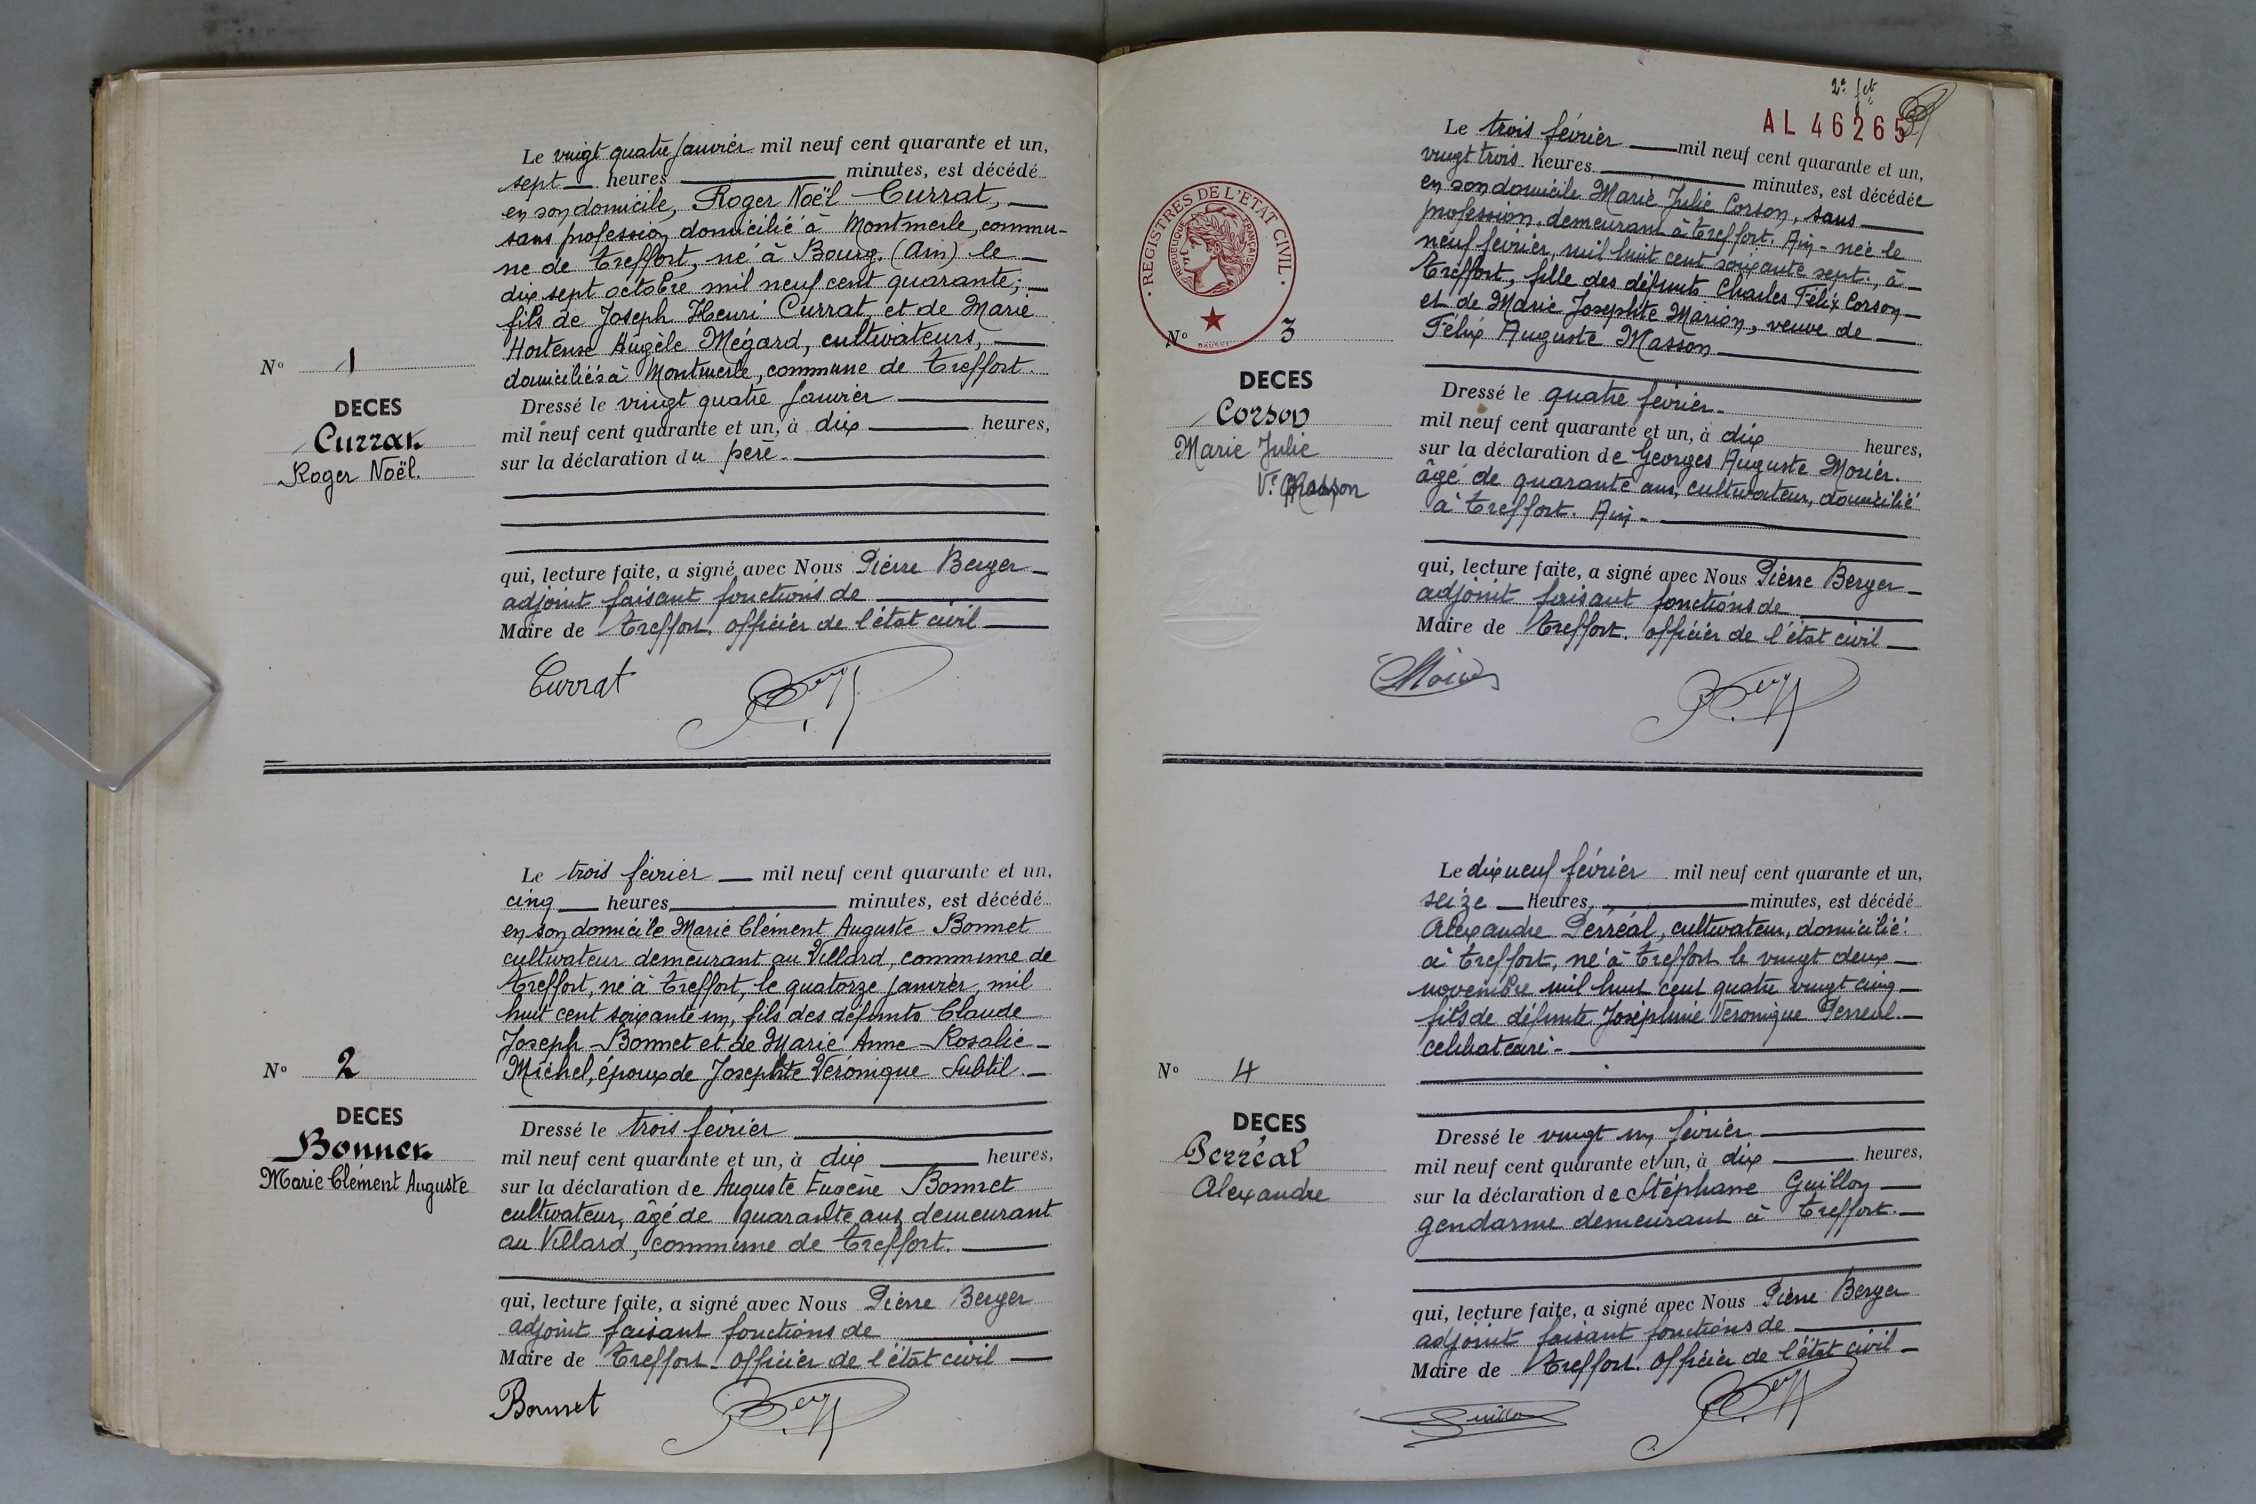 Le vingt quatre janvier mil neuf cent quarante et un,
sept heures minutes, est décédé
en son domicile, Roger Noël Currat,
sans profession domicilié à Montmerle, commu-
ne de Treffort, né à Bourg (Ain) le
dix sept octobre mil neuf cent quarante;
fils de Joseph Henri Currat et de Marie
Hortense Angèle Mégard, cultivateurs,
domiciliés à Montmerle, commune de Treffort.
No 1
DECES
Currat
Roger Noël.
Dressé le vingt quatre janvier
mil neuf cent quarante et un, à dix heures,
sur la déclaration du père.
qui, lecture faite, a signé avec Nous Pierre Berger
adjoint faisant fonctions de
Maire de Treffort. officier de l'état civil
Currat
Le trois février mil neuf cent quarante et un,
cinq heures minutes, est décédé
en son domicile Marie Clément Auguste Bonnet
cultivateur demeurant au Villard, commune de
Treffort, né à Treffort, le quatorze janvier, mil
huit cent soixante un, fils des défunts Claude
Joseph Bonnet et de Marie Anne Rosalie
Michel, époux de Josephte Véronique Subtil.
No 2
DECES
Bonnet
Marie Clément Auguste
Dressé le trois février
mil neuf cent quarante et un, à dix heures,
sur la déclaration de Auguste Eugène Bonnet
cultivateur, âgé de quarante ans demeurant
au Villard, commune de Treffort.
qui, lecture faite, a signé avec Nous Pierre Berger
adjoint faisant fonctions de
Maire de Treffort officier de l'état civil
Bonnet
2e fet
AL 46265
Le trois février mil neuf cent quarante et un,
vingt trois heures minutes, est décédée
en son domicile Marie Julie Corson, sans
profession, demeurant à Treffort. Ain - née le
neuf février, mil huit cent soixante sept, à
Treffort, fille des défunts Charles Félix Corson
et de Marie Josephte Marion, veuve de
Félix Auguste Masson
REGISTRES DE L'ETAT CIVIL
REPUBLIQUE FRANÇAISE
No 3
DECES
Corson
Marie Julie
Ve Masson
Dressé le quatre février
mil neuf cent quarante et un, à dix heures,
sur la déclaration de Georges Auguste Morier.
âgé de quarante ans, cultivateur, domicilié
à Treffort. Ain.
qui, lecture faite, a signé avec Nous Pierre Berger
adjoint faisant fonctions de
Maire de Treffort. officier de l'état civil
Le dix neuf février mil neuf cent quarante et un,
seize heures, minutes, est décédé
Alexandre Perréal, cultivateur, domicilié
à Treffort, né à Treffort le vingt deux
novembre mil huit cent quatre vingt cinq
fils de défunte Joséphine Véronique Perreal.
célibataire.
No 4
DECES
Perréal
Alexandre
Dressé le vingt un février
mil neuf cent quarante et un, à dix heures,
sur la déclaration de Stéphane Guillon
gendarme demeurant à Treffort.
qui, lecture faite, a signé avec Nous Pierre Berger
adjoint faisant fonctions de
Maire de Treffort. officier de l'état civil
Guillon